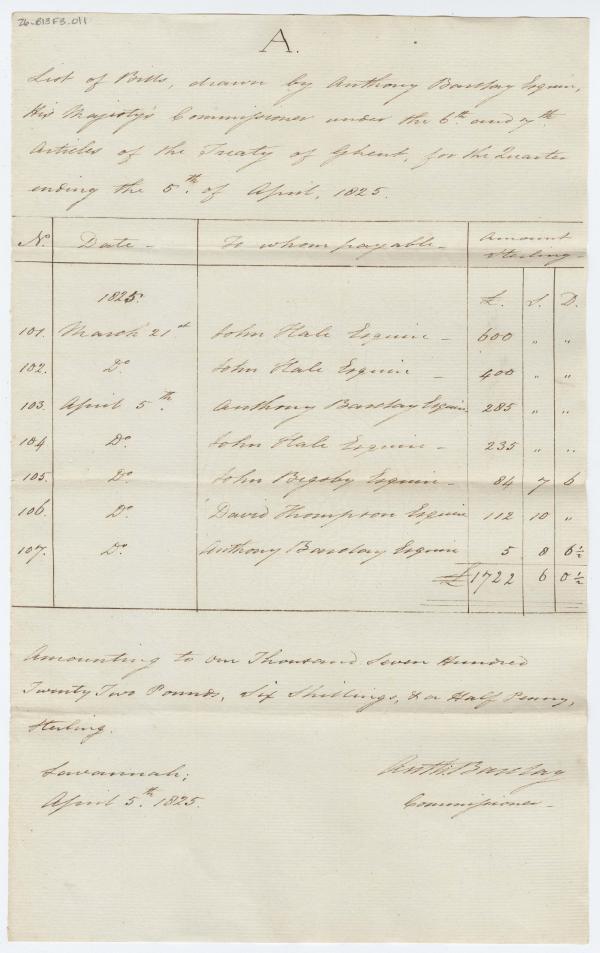 26-B13F3-011
A.
List of Bills, drawn by Anthony Barclay Esquire,
His Majesty's Commissioner under the 6th and 7th
Articles of the Treaty of Ghent, for the Quarter
ending the 5th of April, 1825.
No. Date - To whom payable - Amount Sterling -
1825. £. S. D.
101. March 21st John Hale Esquire - 600 " "
102. Do. John Hale Esquire - 400 " "
103. April 5th. Anthony Barclay Esquire 285 " "
104 Do. John Hale Esquire - 235 " "
105. Do. John Bigsby Esquire - 84 7 6
106. Do. David Thompson Esquire 112 10 "
107. Do. Anthony Barclay Esquire 5 8 6½
£ 1722 6 0½
Amounting to One Thousand Seven Hundred
Twenty Two Pounds, Six Shillings, & a Half Penny,
Sterling.
Savannah;
April 5th. 1825.
Anth: Barclay
Commissioner -